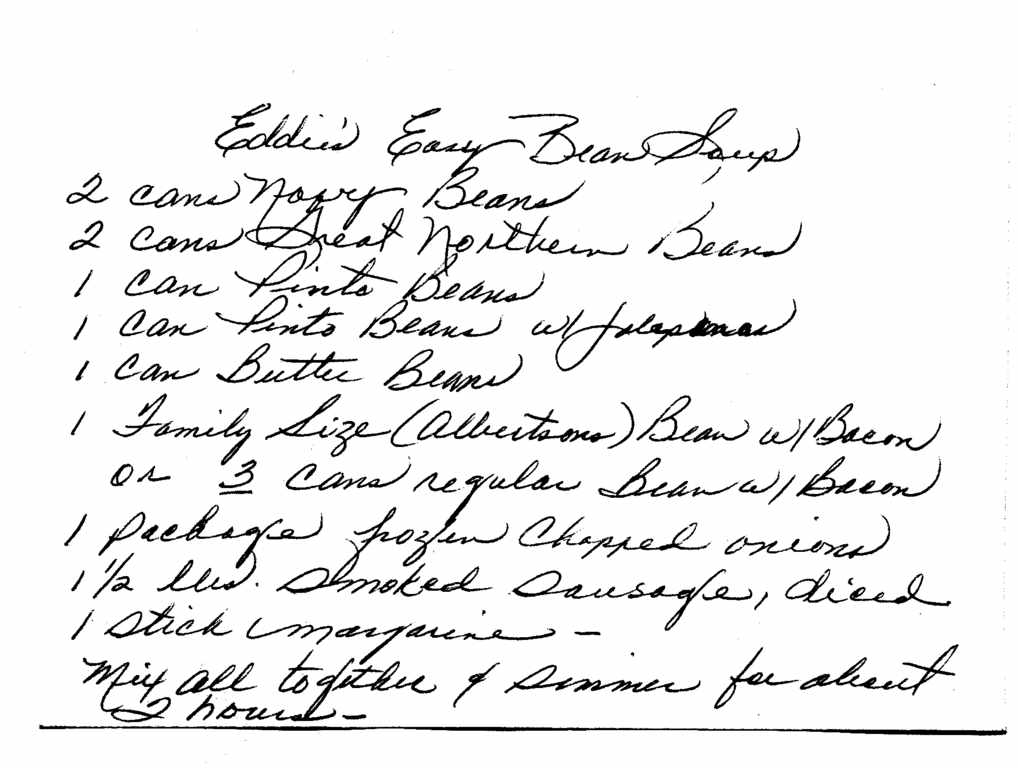 Eddie's Easy Bean Soup
2 cans Navy Beans
2 cans Great Northern Beans
1 can Pinto Beans
1 can Pinto Beans w/ Jalapenos
1 can Butter Beans
1 Family Size (Albertsons) Bean w/ Bacon
or 3 cans regular Bean w/ Bacon
1 package frozen chopped onions
1 1/2 lbs. smoked sausage, diced
1 stick margarine -
Mix all together & simmer for about
2 hours -